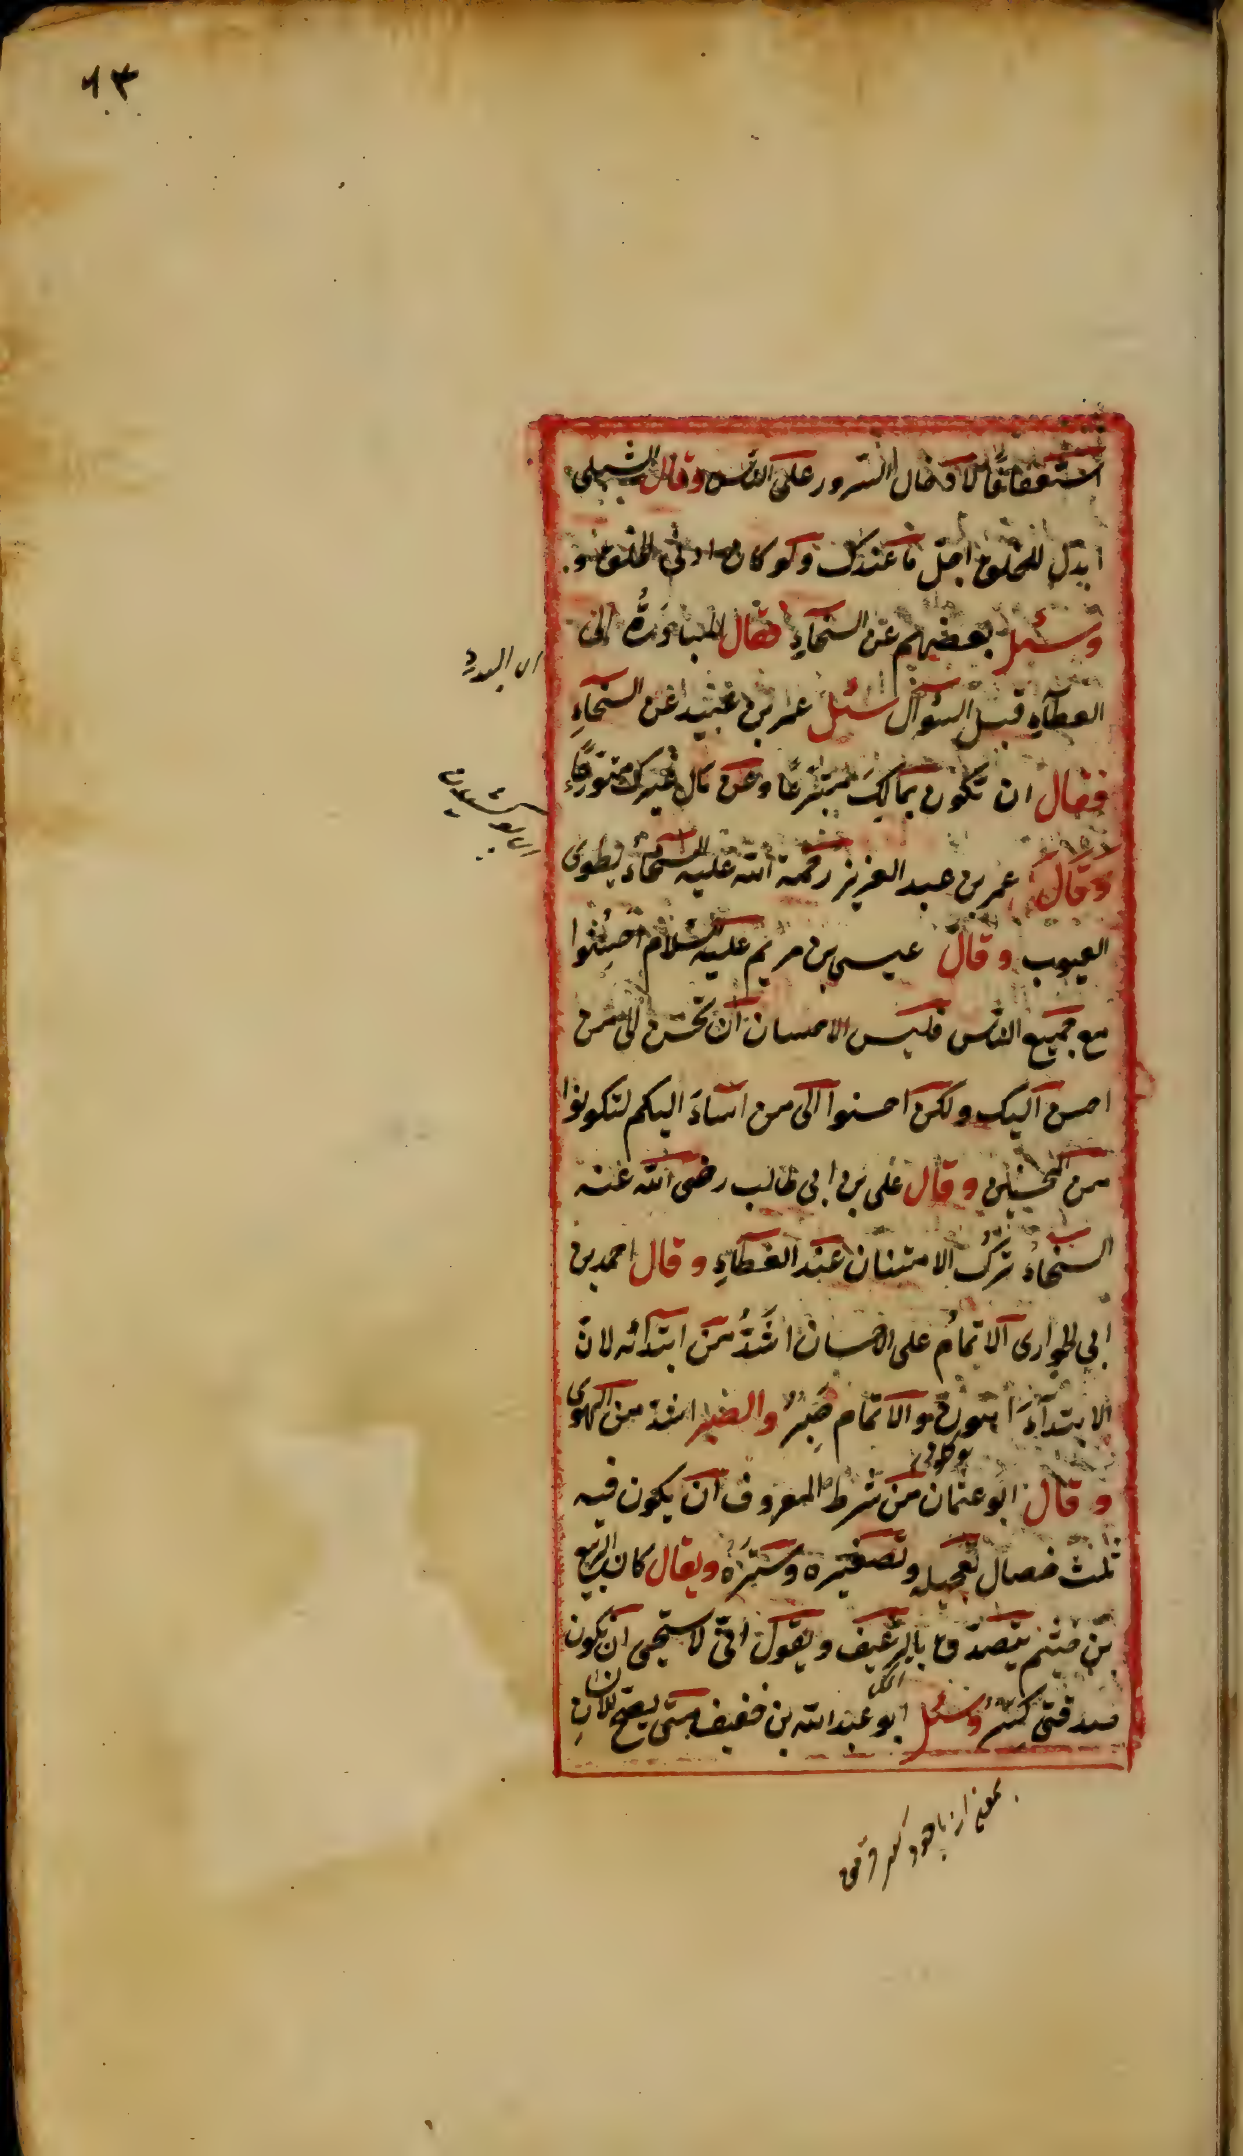 ٩٣
استحقاقا لادخال السرور على الناس وقال الشبلى
ابذل للخلق اجل ما عندك ولو كان ادنى الخلق و
وسئل بعضهم عن السخآءِ فقال المبادَرةُ الى
العطآءِ قبل السؤآل سئل عمر بن عبيد عن السخآءِ
فقال ان تكون بمالِكَ متبرّعًا وعن مال غيرك متورِّعًا
وَقَالَ عمر بن عبد العزيز رحمة الله عليه السخآءُ يطوى
العيوب وقال عيسى بن مريم عليه السّلام اَحسِنُوا
مع جميع الناس فليس الاحسان ان تحسن الى من
احسن اليك ولكن احسنوا الى من اساءَ اليكم لتكونوا
من المحسنين وقال على بن ابى طالب رضى الله عنه
السخاءُ تركُ الامتنان عند العطآءِ وقال احمد بن
ابى الحوارى الاتمامُ على الاحسان اشَدُّ من ابتدآئه لانّ
الابتدآءَ والاتمام صَبرٌ والصبر اشد من الهوى
وقال ابو عثمان من شرط المعروف ان يكون فيه
ثلث خصال تعجيله وتصغيره وستره ويقال كان الربيع
بن خيثم يتصدق بالرغيف ويقول انّى لاستحيى ان تكون
صدقتى كسرٌ وسئل ابو عبد الله بن خفيف متى يصحّ للانسان